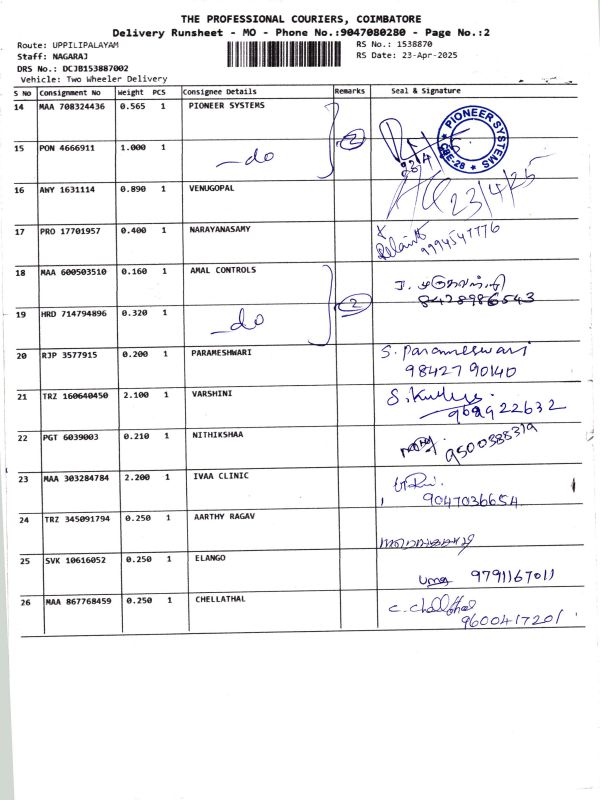 THE PROFESSIONAL COURIERS, COIMBATORE
Delivery Runsheet - MO - Phone No.:9047080280 - Page No.:2
Route: UPPILIPALAYAM RS No.: 1538870
Staff: NAGARAJ RS Date: 23-Apr-2025
DRS No.: DCJB153887002
Vehicle: Two Wheeler Delivery
S No Consignment No Weight PCS Consignee Details Remarks Seal & Signature
14 MAA 708324436 0.565 1 PIONEER SYSTEMS 2 PIONEER SYSTEMS ★ CBE-28 ★
15 PON 4666911 1.000 1 do
16 ANY 1631114 0.890 1 VENUGOPAL 23/4/25
17 PRO 17701957 0.400 1 NARAYANASAMY 9994547776
18 MAA 600503510 0.160 1 AMAL CONTROLS 2 8428986543
19 HRD 714794896 0.320 1 do
20 RJP 3577915 0.200 1 PARAMESHWARI S. Parameswari
9842790140
21 TRZ 160640450 2.100 1 VARSHINI
9629922632
22 PGT 6039003 0.210 1 NITHIKSHAA 9500388319
23 MAA 303284784 2.200 1 IVAA CLINIC
9047036654
24 TRZ 345091794 0.250 1 AARTHY RAGAV
25 SVK 10616052 0.250 1 ELANGO Uma 9791167011
26 MAA 867768459 0.250 1 CHELLATHAL C. Chellathal
9600417201